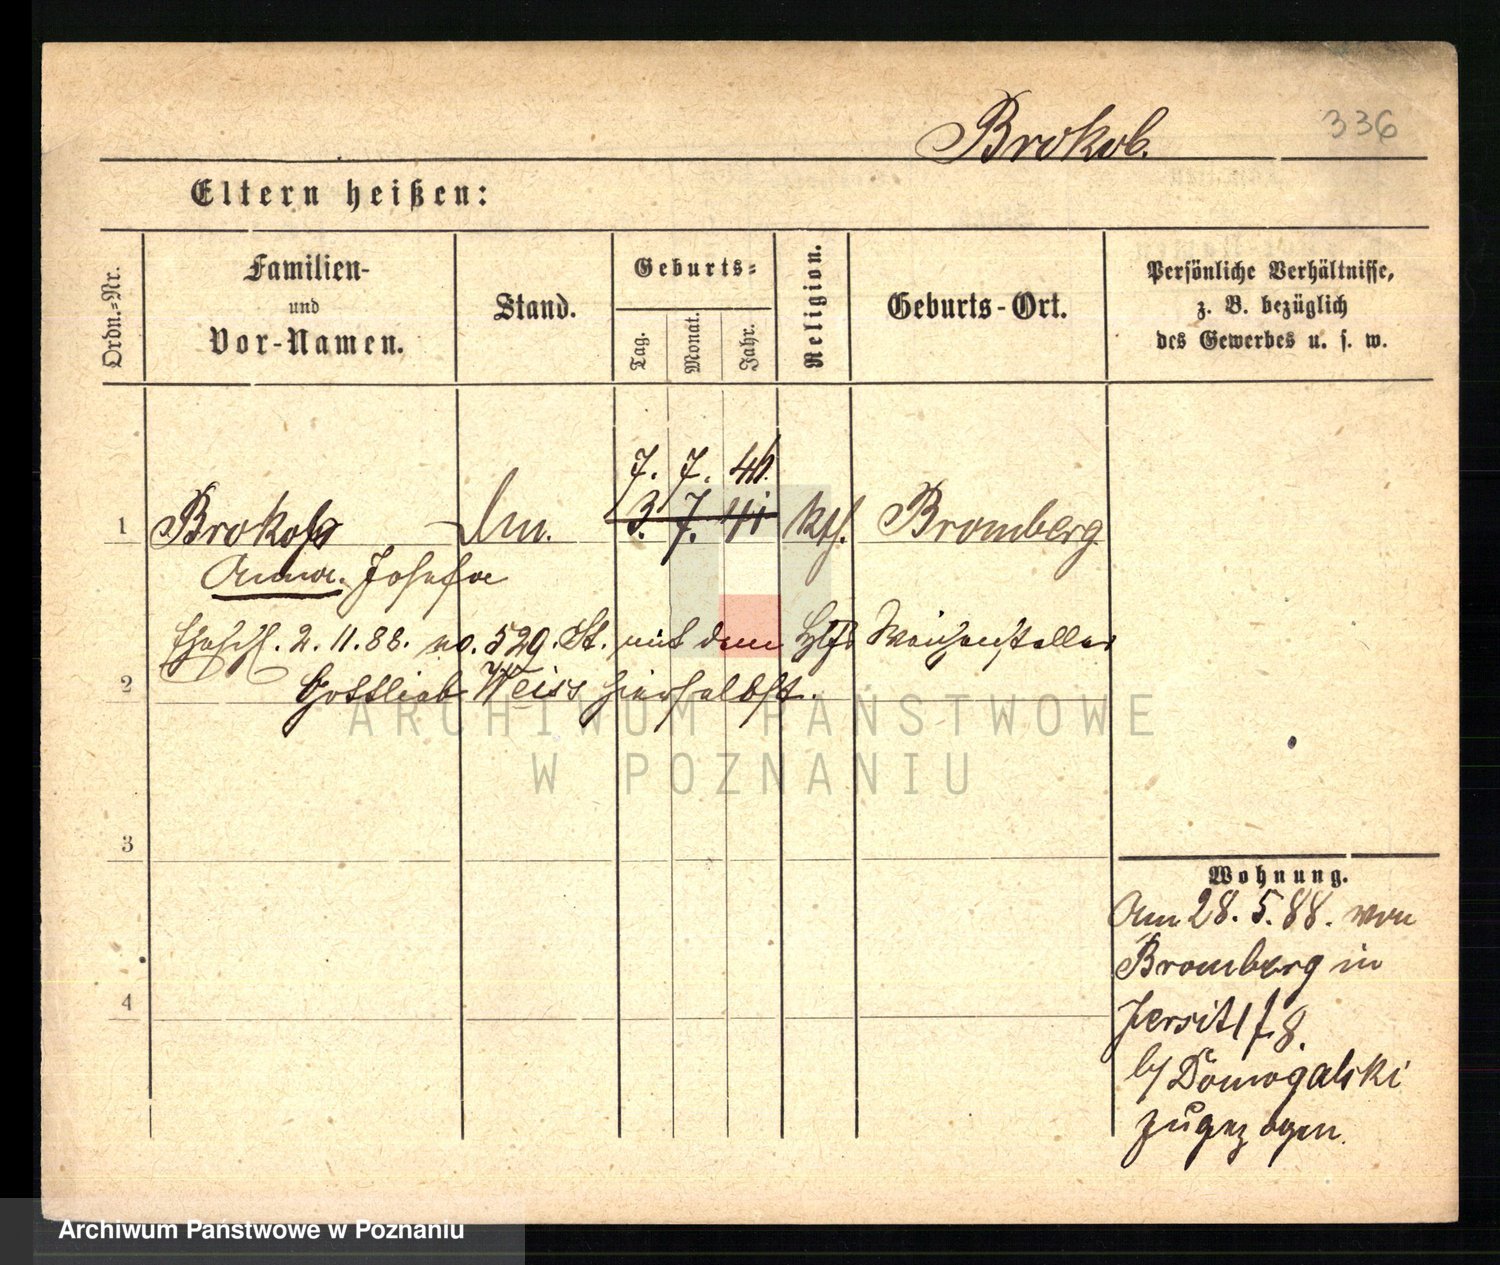 Brokob.
336
Eltern heißen:
Ordn.-Nr.
Familien-
und
Vor-Namen.
Stand.
Geburts-
Tag.
Monat.
Jahr.
Religion.
Geburts-Ort.
Persönliche Verhältnisse,
z. B. bezüglich
des Gewerbes u. s. w.
7. 7. 46.
1 Brokob 3. 7. 41 kth. Bromberg
Anna. Josefa
Ehesch. 2.11.88. no. 529. St. mit dem Hlfs Weichensteller
2 Gottlieb Weiss hierselbst.
ARCHIWUM PAŃSTWOWE
W POZNANIU
3
Wohnung.
Am 28. 5. 88. von
Bromberg in
4
Jersitz 8.
b/ Domogalski
zugezogen.
Archiwum Państwowe w Poznaniu